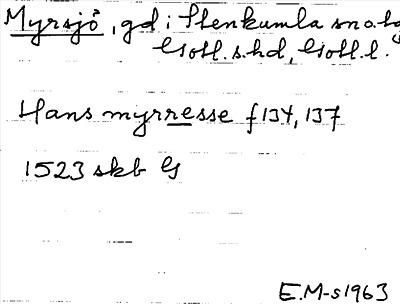 Myrsjö, gd i Stenkumla sn o. tg
Gotl. s. hd, Gotl. l.
Hans myrresse f 134, 137
1523 skb G
E.M-s 1963